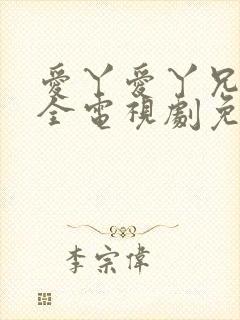 愛丫愛丫兄
全電視劇免
李宗偉